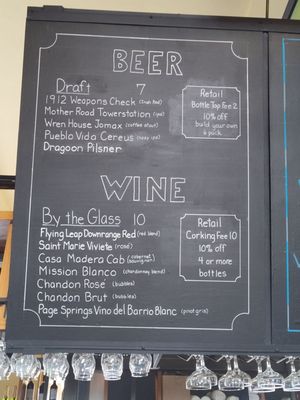 BEER
Draft 7
1912 Weapons Check (Irish Red)
Mother Road Towerstation (ipa)
Wren House Jomax (coffee stout)
Pueblo Vida Cereus (hazy ipa)
Dragoon Pilsner
Retail
Bottle Tap Fee 2
10% off
build your own
6 pack
WINE
By the Glass 10
Flying Leap Downrange Red (red blend)
Saint Marie Viviete (rosé)
Casa Madera Cab (cabernet sauvignon)
Mission Blanco (chardonnay blend)
Chandon Rosé (bubbles)
Chandon Brut (bubbles)
Page Springs Vino del Barrio Blanc (pinot gris)
Retail
Corking Fee 10
10% off
4 or more
bottles